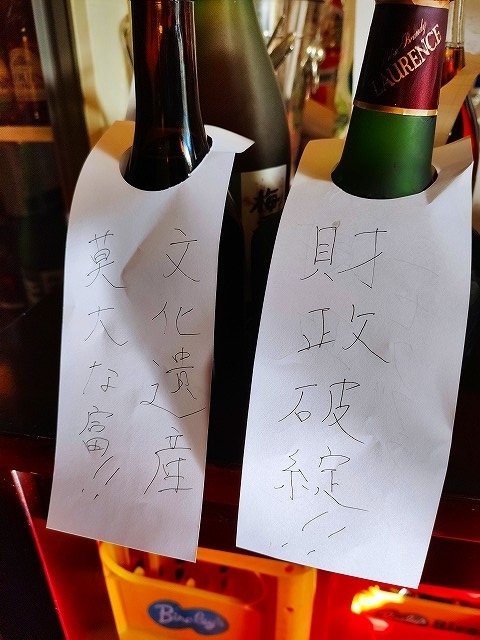 文化遺産
莫大な富!!
財政破綻!!
LAURENCE
梅